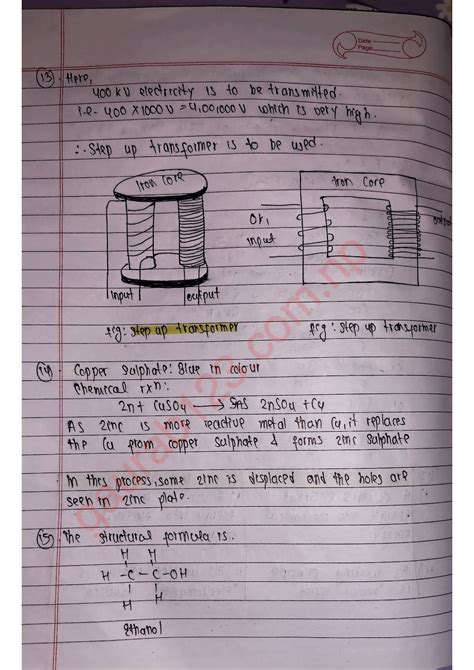 Date
Page
(13). Here,
400 KV electricity is to be transmitted.
i.e- 400 X 1000 V = 4,00,000 V which is very high.
∴ Step up transformer is to be used.
Iron Core
Iron Core
Or,
input
output
input
output
fig: Step up transformer
fig: Step up transformer
(14) Copper Sulphate: Blue in colour
Chemical rxn:
Zn + CuSO4 → ZnSO4 + Cu
As zinc is more reactive metal than Cu, it replaces
the Cu from copper sulphate & forms zinc sulphate
In this process, some zinc is displaced and the holes are
seen in zinc plate.
(15) The structural formula is.
H H
H - C - C - OH
H H
Ethanol
gaurab123.com.np